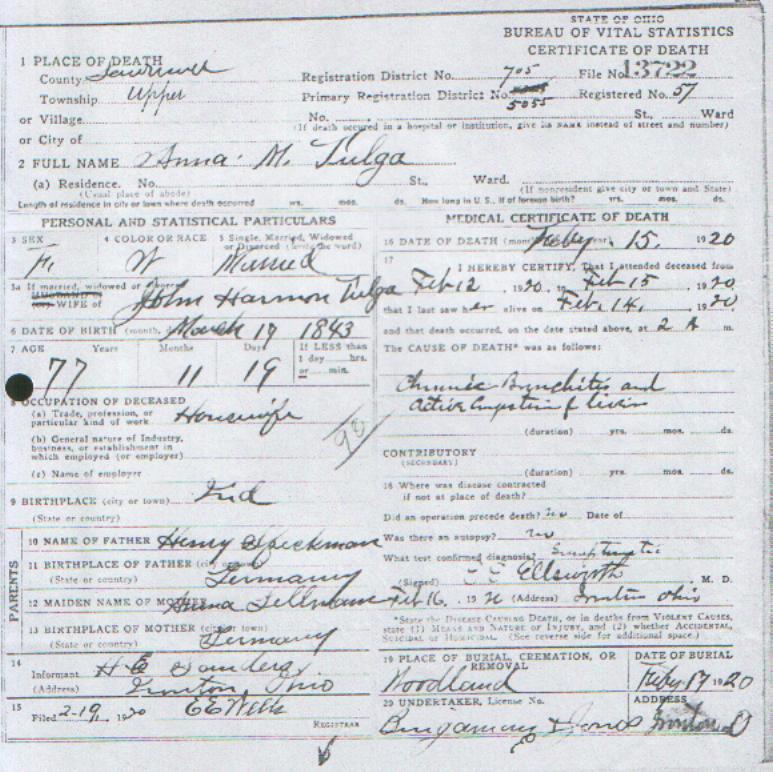 STATE OF OHIO
BUREAU OF VITAL STATISTICS
CERTIFICATE OF DEATH
1 PLACE OF DEATH
County Lawrence
Township Upper
or Village
or City of
Registration District No. 705 File No. 13722
Primary Registration District No. 5055 Registered No. 57
No. St., Ward
(If death occured in a hospital or institution, give its NAME instead of street and number)
2 FULL NAME Anna M. Tulga
(a) Residence. No. St., Ward.
(Usual place of abode) (If nonresident give city or town and State)
Length of residence in city or town where death occurred yrs. mos. ds. How long in U.S., if of foreign birth? yrs. mos. ds.
PERSONAL AND STATISTICAL PARTICULARS
3 SEX 4 COLOR OR RACE 5 Single, Married, Widowed or Divorced (write the word)
F. W Married
5a If married, widowed or divorced
HUSBAND of
(or) WIFE of John Harmon Tulga
6 DATE OF BIRTH (month, March 19 1843
7 AGE Years Months Days If LESS than
1 day hrs.
or min.
77 11 19
8 OCCUPATION OF DECEASED
(a) Trade, profession, or
particular kind of work Housewife
(b) General nature of Industry,
business, or establishment in
which employed (or employer)
(c) Name of employer
90
9 BIRTHPLACE (city or town) Ind
(State or country)
PARENTS
10 NAME OF FATHER Henry Speckman
11 BIRTHPLACE OF FATHER (city or town)
(State or country) Germany
12 MAIDEN NAME OF MOTHER Anna Fellmann
13 BIRTHPLACE OF MOTHER (city or town)
(State or country) Germany
14
Informant H E Sanders
(Address) Ironton, Ohio
15
Filed 2-19, 1920 EE Wells
REGISTRAR
MEDICAL CERTIFICATE OF DEATH
16 DATE OF DEATH Feby 15. 1920
17
I HEREBY CERTIFY, That I attended deceased from
Feb 12, 1920, to Feb 15, 1920
that I last saw her alive on Feb. 14, 1920
and that death occurred, on the date stated above, at 2 A m.
The CAUSE OF DEATH* was as follows:
Chronic Bronchitis and
Active Congestion of Liver
(duration) yrs. mos. ds.
CONTRIBUTORY
(SECONDARY)
(duration) yrs. mos. ds.
18 Where was disease contracted
if not at place of death?
Did an operation precede death? no Date of
Was there an autopsy? no
What test confirmed diagnosis?
(Signed) Ellsworth M. D.
Feb 16. 19 (Address) Ironton Ohio
*State the DISEASE CAUSING DEATH, or in deaths from VIOLENT CAUSES,
state (1) MEANS AND NATURE OF INJURY, and (2) whether ACCIDENTAL,
SUICIDAL or HOMICIDAL. (See reverse side for additional space.)
19 PLACE OF BURIAL, CREMATION, OR REMOVAL DATE OF BURIAL
Woodland Feby 17 1920
20 UNDERTAKER, License No. ADDRESS
Bingaman & Jones Ironton O